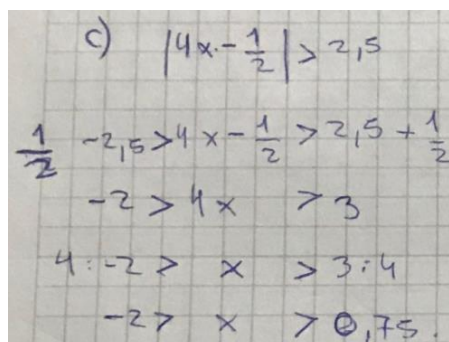 c) |4x - 1/2| > 2,5
1/2 -2,5 > 4x - 1/2 > 2,5 + 1/2
-2 > 4x > 3
4 : -2 > x > 3 : 4
-2 > x > 0,75.